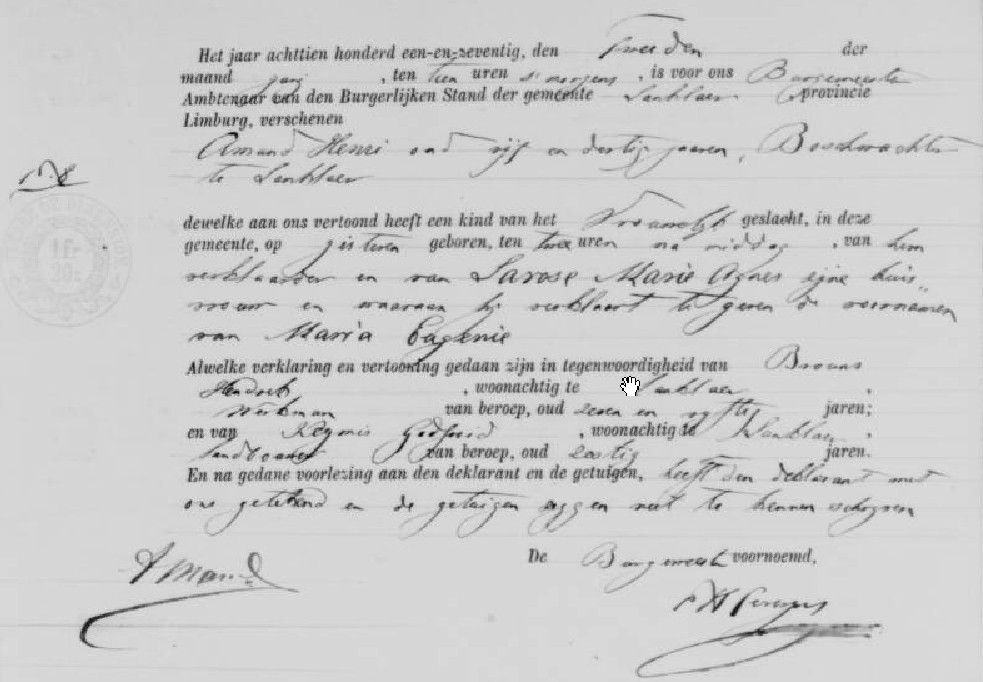 Het jaar achttien honderd een-en-zeventig, den Tweeden der
maand juny, ten tien uren s'morgens, is voor ons Burgemeester
Ambtenaar van den Burgerlijken Stand der gemeente Lanklaer provincie
Limburg, verschenen
Amand Henri oud vijf en dertig jaaren, Boschwachter
te Lanklaer
dewelke aan ons vertoond heeft een kind van het Vrouwelijk geslacht, in deze
gemeente, op gisteren geboren, ten twee uren na middag, van hem
verklaarder en van Larose Marie Agnes zijne huis„
vrouw en waaraan hij verklaart te geven de voornamen
van Maria Eugenie
Alwelke verklaring en vertooning gedaan zijn in tegenwoordigheid van Brouns
Hendrik, woonachtig te Lanklaer,
Werkman van beroep, oud zeven en vyftig jaren;
en van Godfried, woonachtig te Lanklaer,
landbouwer van beroep, oud zestig jaren.
En na gedane voorlezing aan den deklarant en de getuigen, heeft den deklarant met
ons getekend en de getuigen zeggen niet te kennen schryven
De Burgemeester voornoemd,
Amand